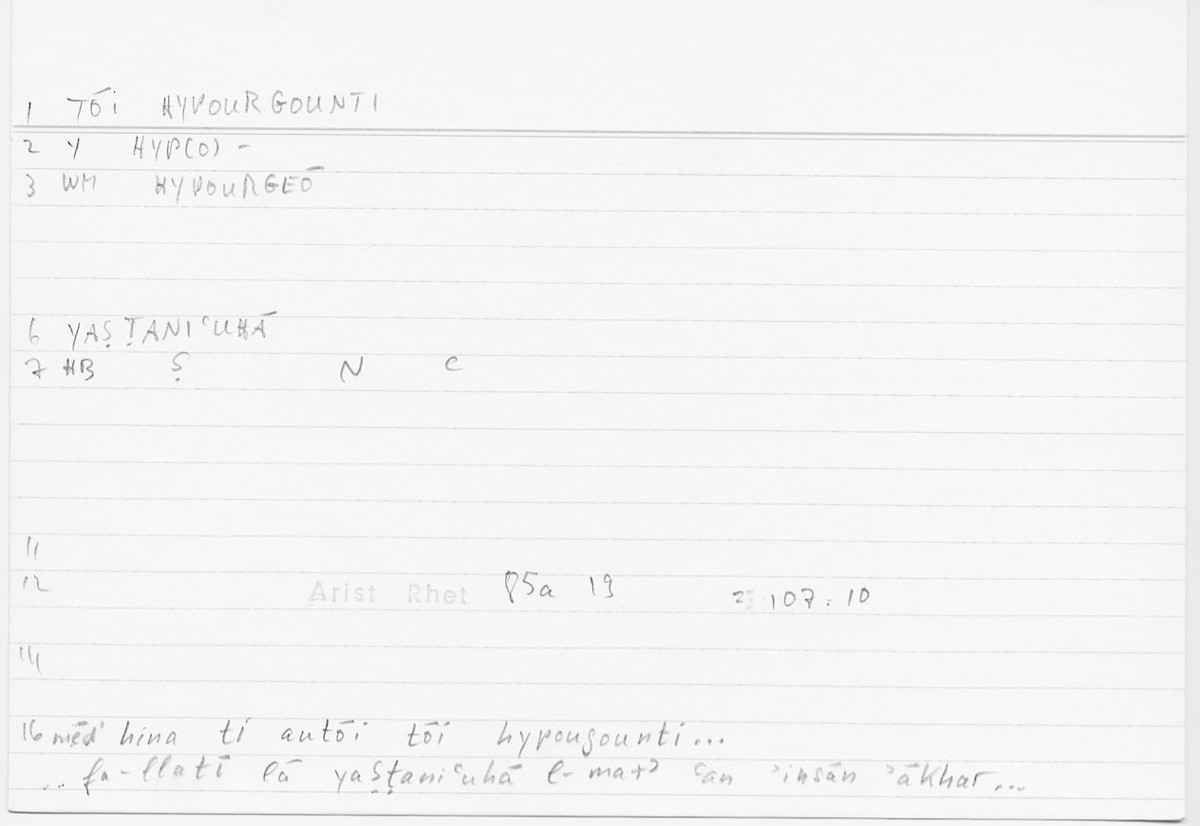 1 TŌI HYPOURGOUNTI
2 Y HYP(O) -
3 WM HYPOURGEŌ
6 YAṢṬANIʿUHĀ
7 HB Ṣ N ʿ
11
12 Arist Rhet 85a 19 = 107.10
14
16 mēd' hina ti autōi tōi hypougounti...
.. fa-llatī lā yaṣṭaniʿuhā l-marʾ ʿan ʾinsān ʾākhar...